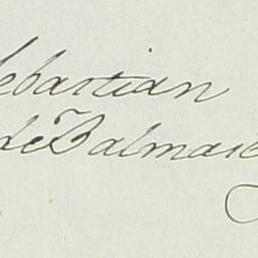 Sebastian
de Balmase